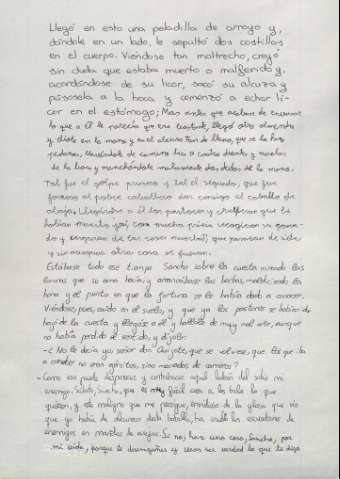 Llegó en esto una peladilla de arroyo y,
dándole en un lado, le sepultó dos costillas
en el cuerpo. Viéndose tan maltrecho, creyó
sin duda que estaba muerto o malferido y,
acordándose de su licor, sacó su alcuza y
púsosela a la boca y comenzó a echar li-
cor en el estómago; Mas antes que acabase de envasar
lo que a él le parecía que era bastante, llegó otra almendra
y diole en la mano y en el alcuza tan de lleno, que se la hizo
pedazos, llevándole de camino tres o cuatro dientes y muelas
de la boca y machucándole malamente dos dedos de la mano.
Tal fue el golpe primero y tal el segundo, que fue
forzoso al pobre caballero dar consigo el caballo
abajo. Llegáronse a él los pastores y creyeron que le
habían muerto y así con mucha priesa recogieron su gana-
do y cargaron de las reses muertas, que pasaban de siete
y sin averiguar otra cosa se fueron.
Estábase todo ese tiempo Sancho sobre la cuesta mirando las
locuras que su amo hacía, y arrancábase las barbas, maldiciendo la
hora y el punto en que la fortuna se le había dado a conocer.
Viéndole, pues, caído en el suelo, y que ya los pastores se habían ido
bajó de la cuesta y llegóse a él y hallóle de muy mal arte, aunque
no había perdido el sentido, y díjole:
-¿No le decía yo, señor don Quijote, que se volviese, que los que iba
a cometer no eran ejércitos, sino manadas de carneros?
- Como eso puede desparecer y contrahacer aquel ladrón del sabio mi
enemigo. Sábete, Sancho, que es muy fácil cosa a los tales lo que
quieren, y este maligno que me persigue, envidioso de la gloria que vio
que yo había de alcanzar desta batalla, ha vuelto los escuadrones de
enemigos en manadas de ovejas. Si no, haz una cosa, Sancho, por
mi vida, porque te desengañes y veas ser verdad lo que te digo